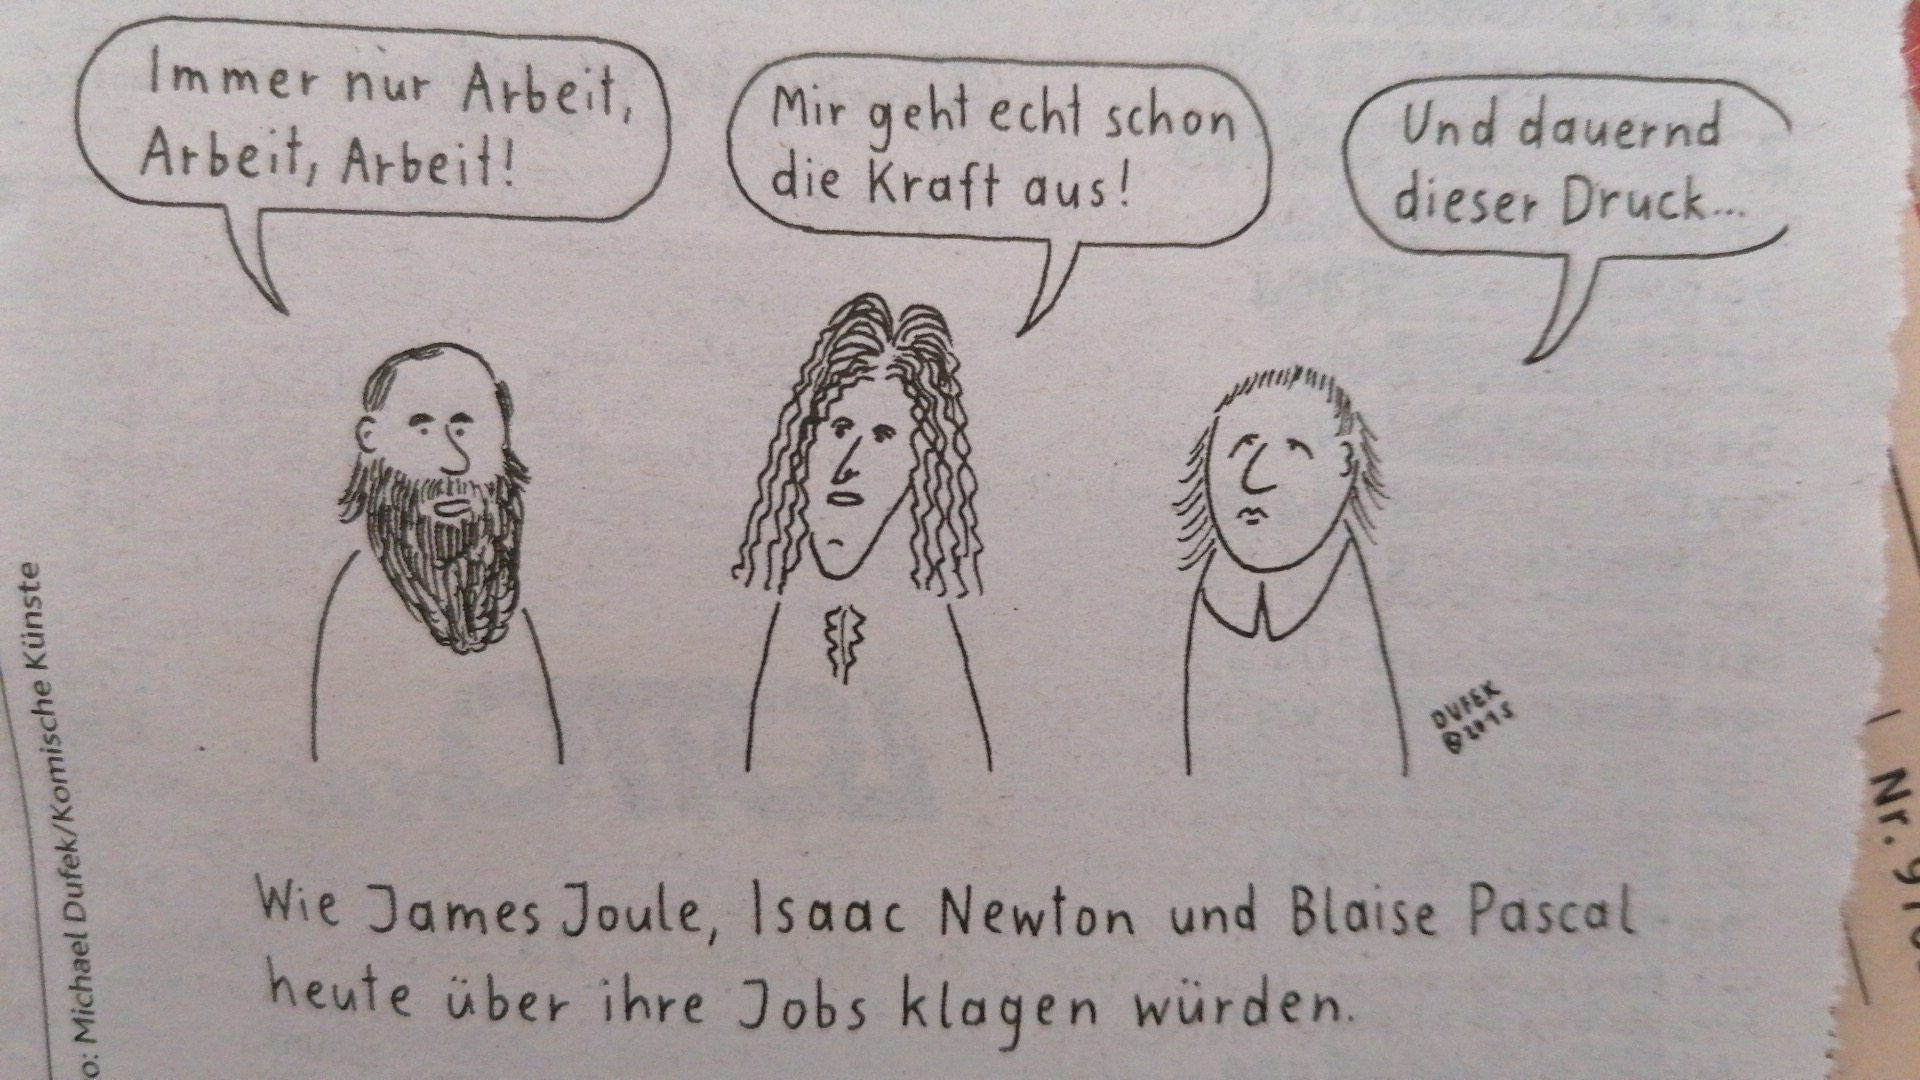 Immer nur Arbeit,
Arbeit, Arbeit!
Mir geht echt schon
die Kraft aus!
Und dauernd
dieser Druck...
DUFEK
©2015
Wie James Joule, Isaac Newton und Blaise Pascal
heute über ihre Jobs klagen würden.
o: Michael Dufek/Komische Künste
Nr.